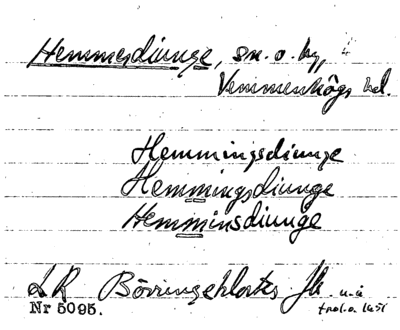 Hemmesdiunge, sn. o. by,
Vemmenhögs hd.
Hemmingsdiunge
Hemmingsdiunge
Hemminsdiunge
LR Börringeklosters Jb
Nr 5095.